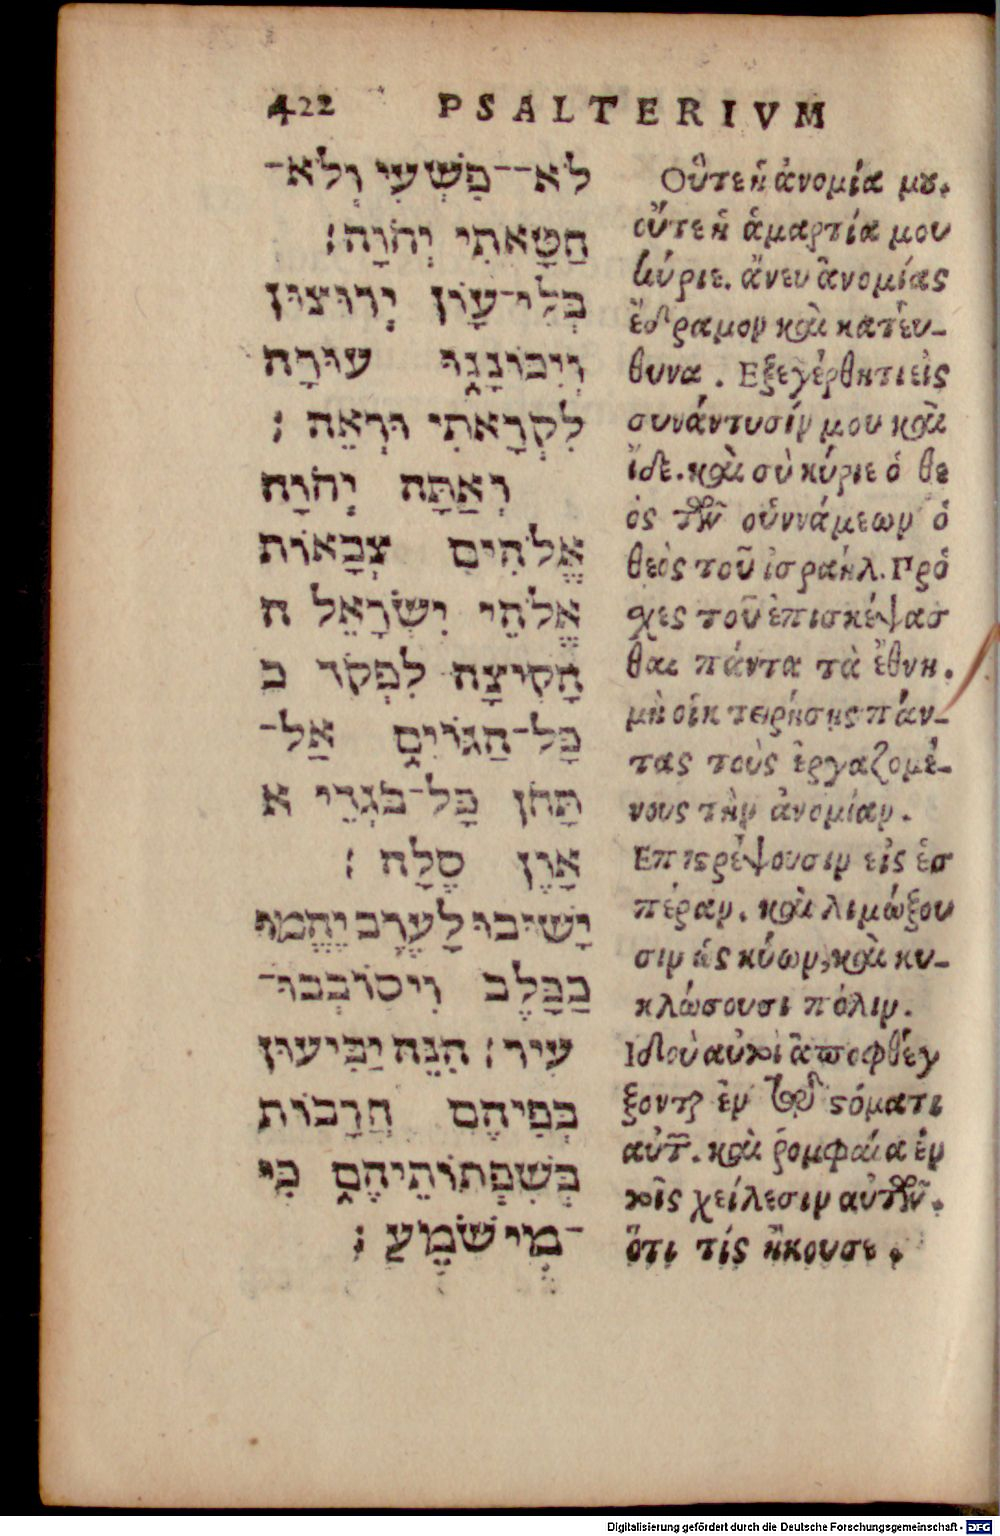 422 PSALTERIVM
לֹא־־פִשְׁעִי וְלֹא־
חַטָּאתִי יְהֹוָה׃
בְּלִי־עָוֹן יְרוּצוּן
וְיִכּוֹנָנוּ עוּרָה
לִקְרָאתִי וּרְאֵה ׃
וְאַתָּה יְהֹוָה
אֱלֹהִים צְבָאוֹת
אֱלֹהֵי יִשְׂרָאֵל ה
הָקִיצָה לִפְקֹד כ
כָּל־הַגּוֹיִם אַל־
תָּחֹן כָּל־בֹּגְדֵי א
אָוֶן סֶלָה ׃
יָשׁוּבוּ לָעֶרֶב יֶהֱמוּ
כַכָּלֶב וִיסוֹבְבוּ־
עִיר׃ הִנֵּה יַבִּיעוּן
בְּפִיהֶם חֲרָבוֹת
בְּשִׂפְתוֹתֵיהֶם כִּי
־מִי שֹׁמֵעַ ׃
Οὔτε ἡ ἀνομία μου.
οὔτε ἡ ἁμαρτία μου
κύριε. ἄνευ ἀνομίας
ἔδραμον καὶ κατεύ-
θυνα . Εξεγέρθητι εἰς
συνάντυσίν μου καὶ
ἴδε. καὶ σὺ κύριε ὁ θε
ὸς τῶν οὑννάμεων ὁ
θεὸς τοῦ ἰσραήλ. Πρό
χες τοῦ ἐπισκέψασ
θαι πάντα τὰ ἔθνη.
μὴ οἰκτειρήσῃς πάν-
τας τοὺς ἐργαζομέ-
νους τὴν ἀνομίαν.
Επιστρέψουσιν εἰς ἑσ
πέραν. καὶ λιμώξου
σιν ὡς κύων, καὶ κυ-
κλώσουσι πόλιν.
Ιδοὺ αὐτοὶ ἀποφθέγ
ξονται ἐν τῷ στόματι
αὐτῶν. καὶ ῥομφαία ἐν
τοῖς χείλεσιν αὐτῶν.
ὅτι τίς ἤκουσε .
Digitalisierung gefördert durch die Deutsche Forschungsgemeinschaft - DFG